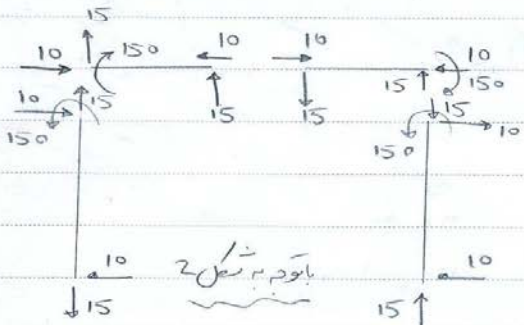 15
10 150 10 10 10
15 150
10 15 15 15 15
150 150 10
10 10
باتوجه به شکل 2
15 15